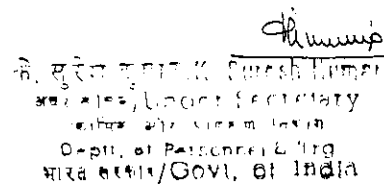 के. सुरेश कुमार/K. Suresh Kumar
अवर सचिव/Under Secretary
कार्मिक और प्रशि० विभाग
Deptt. of Personnel & Trg
भारत सरकार/Govt. of India